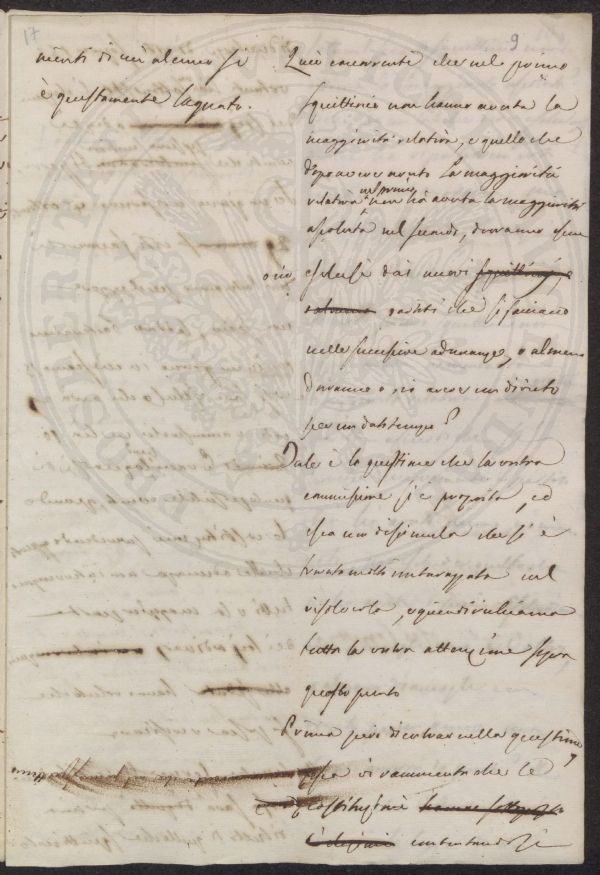 17
9
menti di un alcuno si
è giustamente lagnato.
Quei concorrenti che nel primo
squittinio non hanno avuta la
maggiorità relativa, e quello che
dopo avere avuto la maggiorità
nel primo
relativa non ha avuta la maggiorità
assoluta nel secondo, dovranno esser
o no, esclusi dai nuovi squittinj, e
partiti che si facciano
nelle successive adunanze, o almeno
dovranno o no aver un diritto
per un dato tempo?
Tale è la questione che la vostra
commissione si è proposta, ed
essa non dissimula che si è
trovata molto imbarazzata nel
risolverla, e quindi richiama
tutta la vostra attenzione sopra
questo punto
Prima però di entrar nella questione
essa vi rammenta che le
Costituzioni
contentandosi